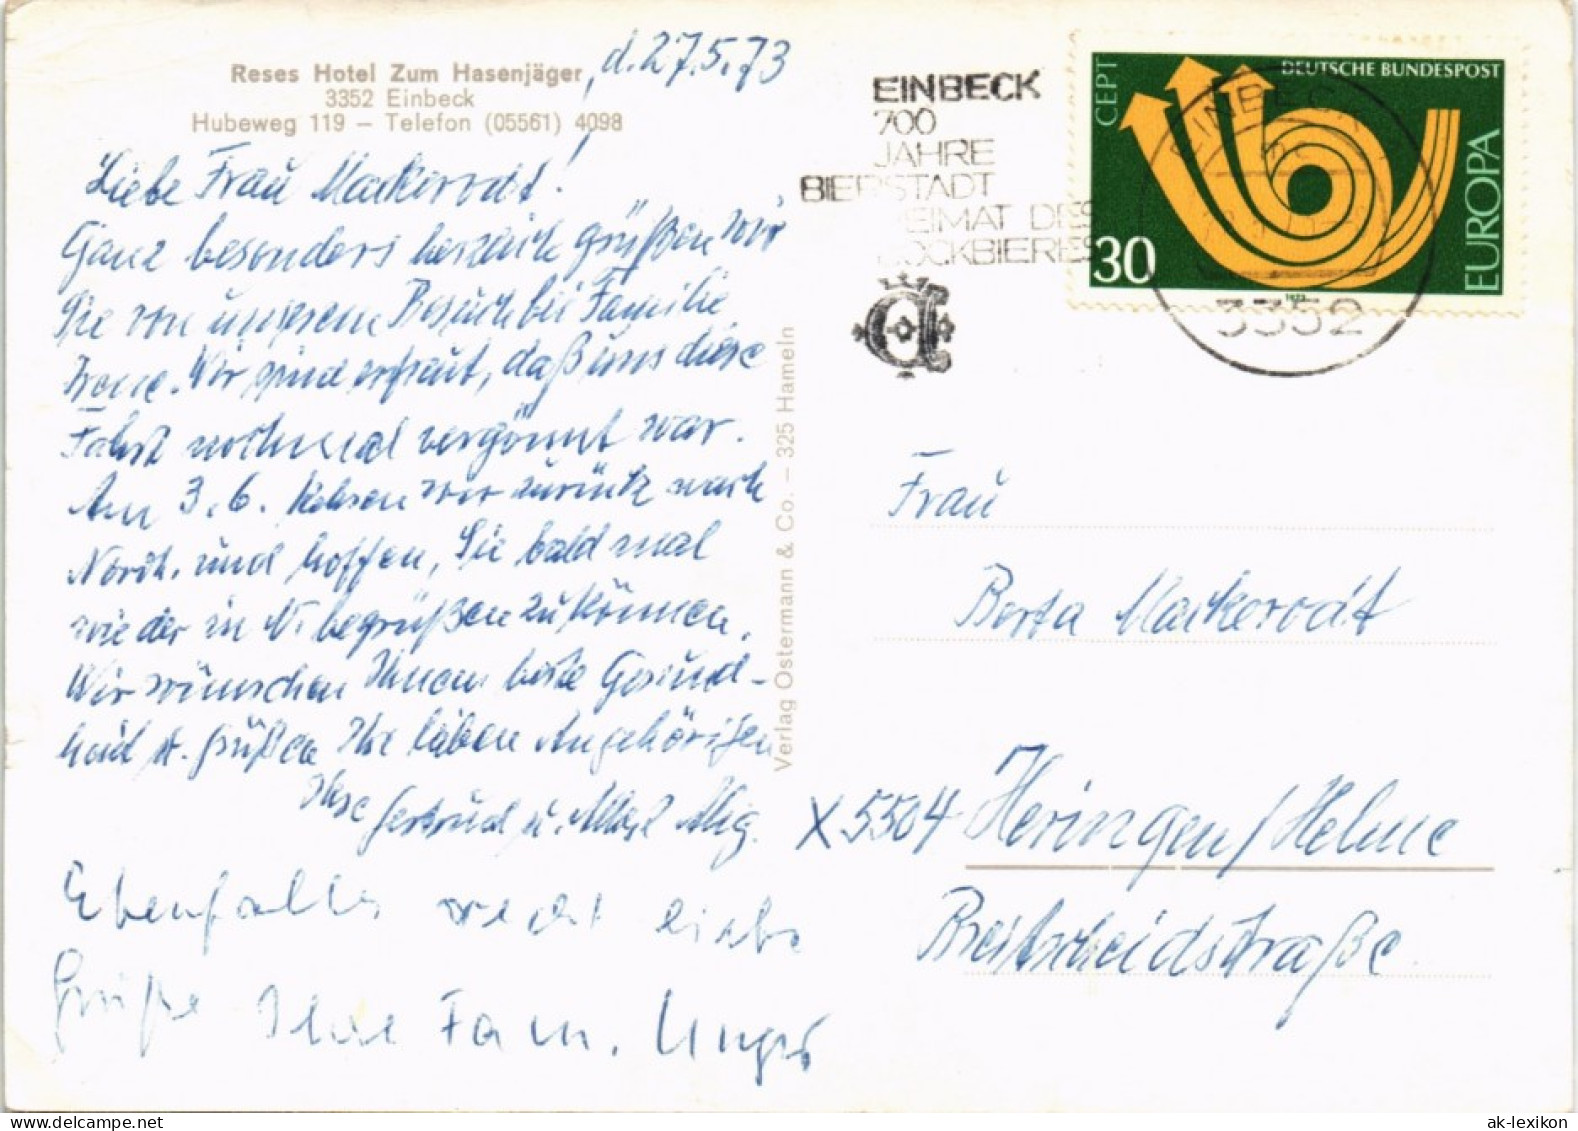 Reses Hotel Zum Hasenjäger
3352 Einbeck
Hubeweg 119 – Telefon (05561) 4098
d. 27.5.73
Liebe Frau Markerodt!
Ganz besonders herzlich grüßen wir
Sie von unserem Besuch bei Familie
Wir sind erfreut, daß uns diese
Fahrt nochmal vergönnt war.
Am 3.6. kehren wir zurück nach
Nordh. und hoffen, Sie bald mal
wieder in N. begrüßen zu können.
Wir wünschen Ihnen beste Gesund-
heit u. grüßen Ihre lieben Angehörigen
Ihre Gertrud u.
Ebenfalls recht liebe
Grüße Ihre Fam. Unger
Verlag Ostermann & Co. – 325 Hameln
EINBECK
700
JAHRE
BIERSTADT
HEIMAT DES
BOCKBIERES
CEPT
DEUTSCHE BUNDESPOST
EUROPA
30
1973
EINBECK
3352
Frau
Berta Markerodt
X 5504 Heringen/Helme
Breitscheidstraße
ak-lexikon